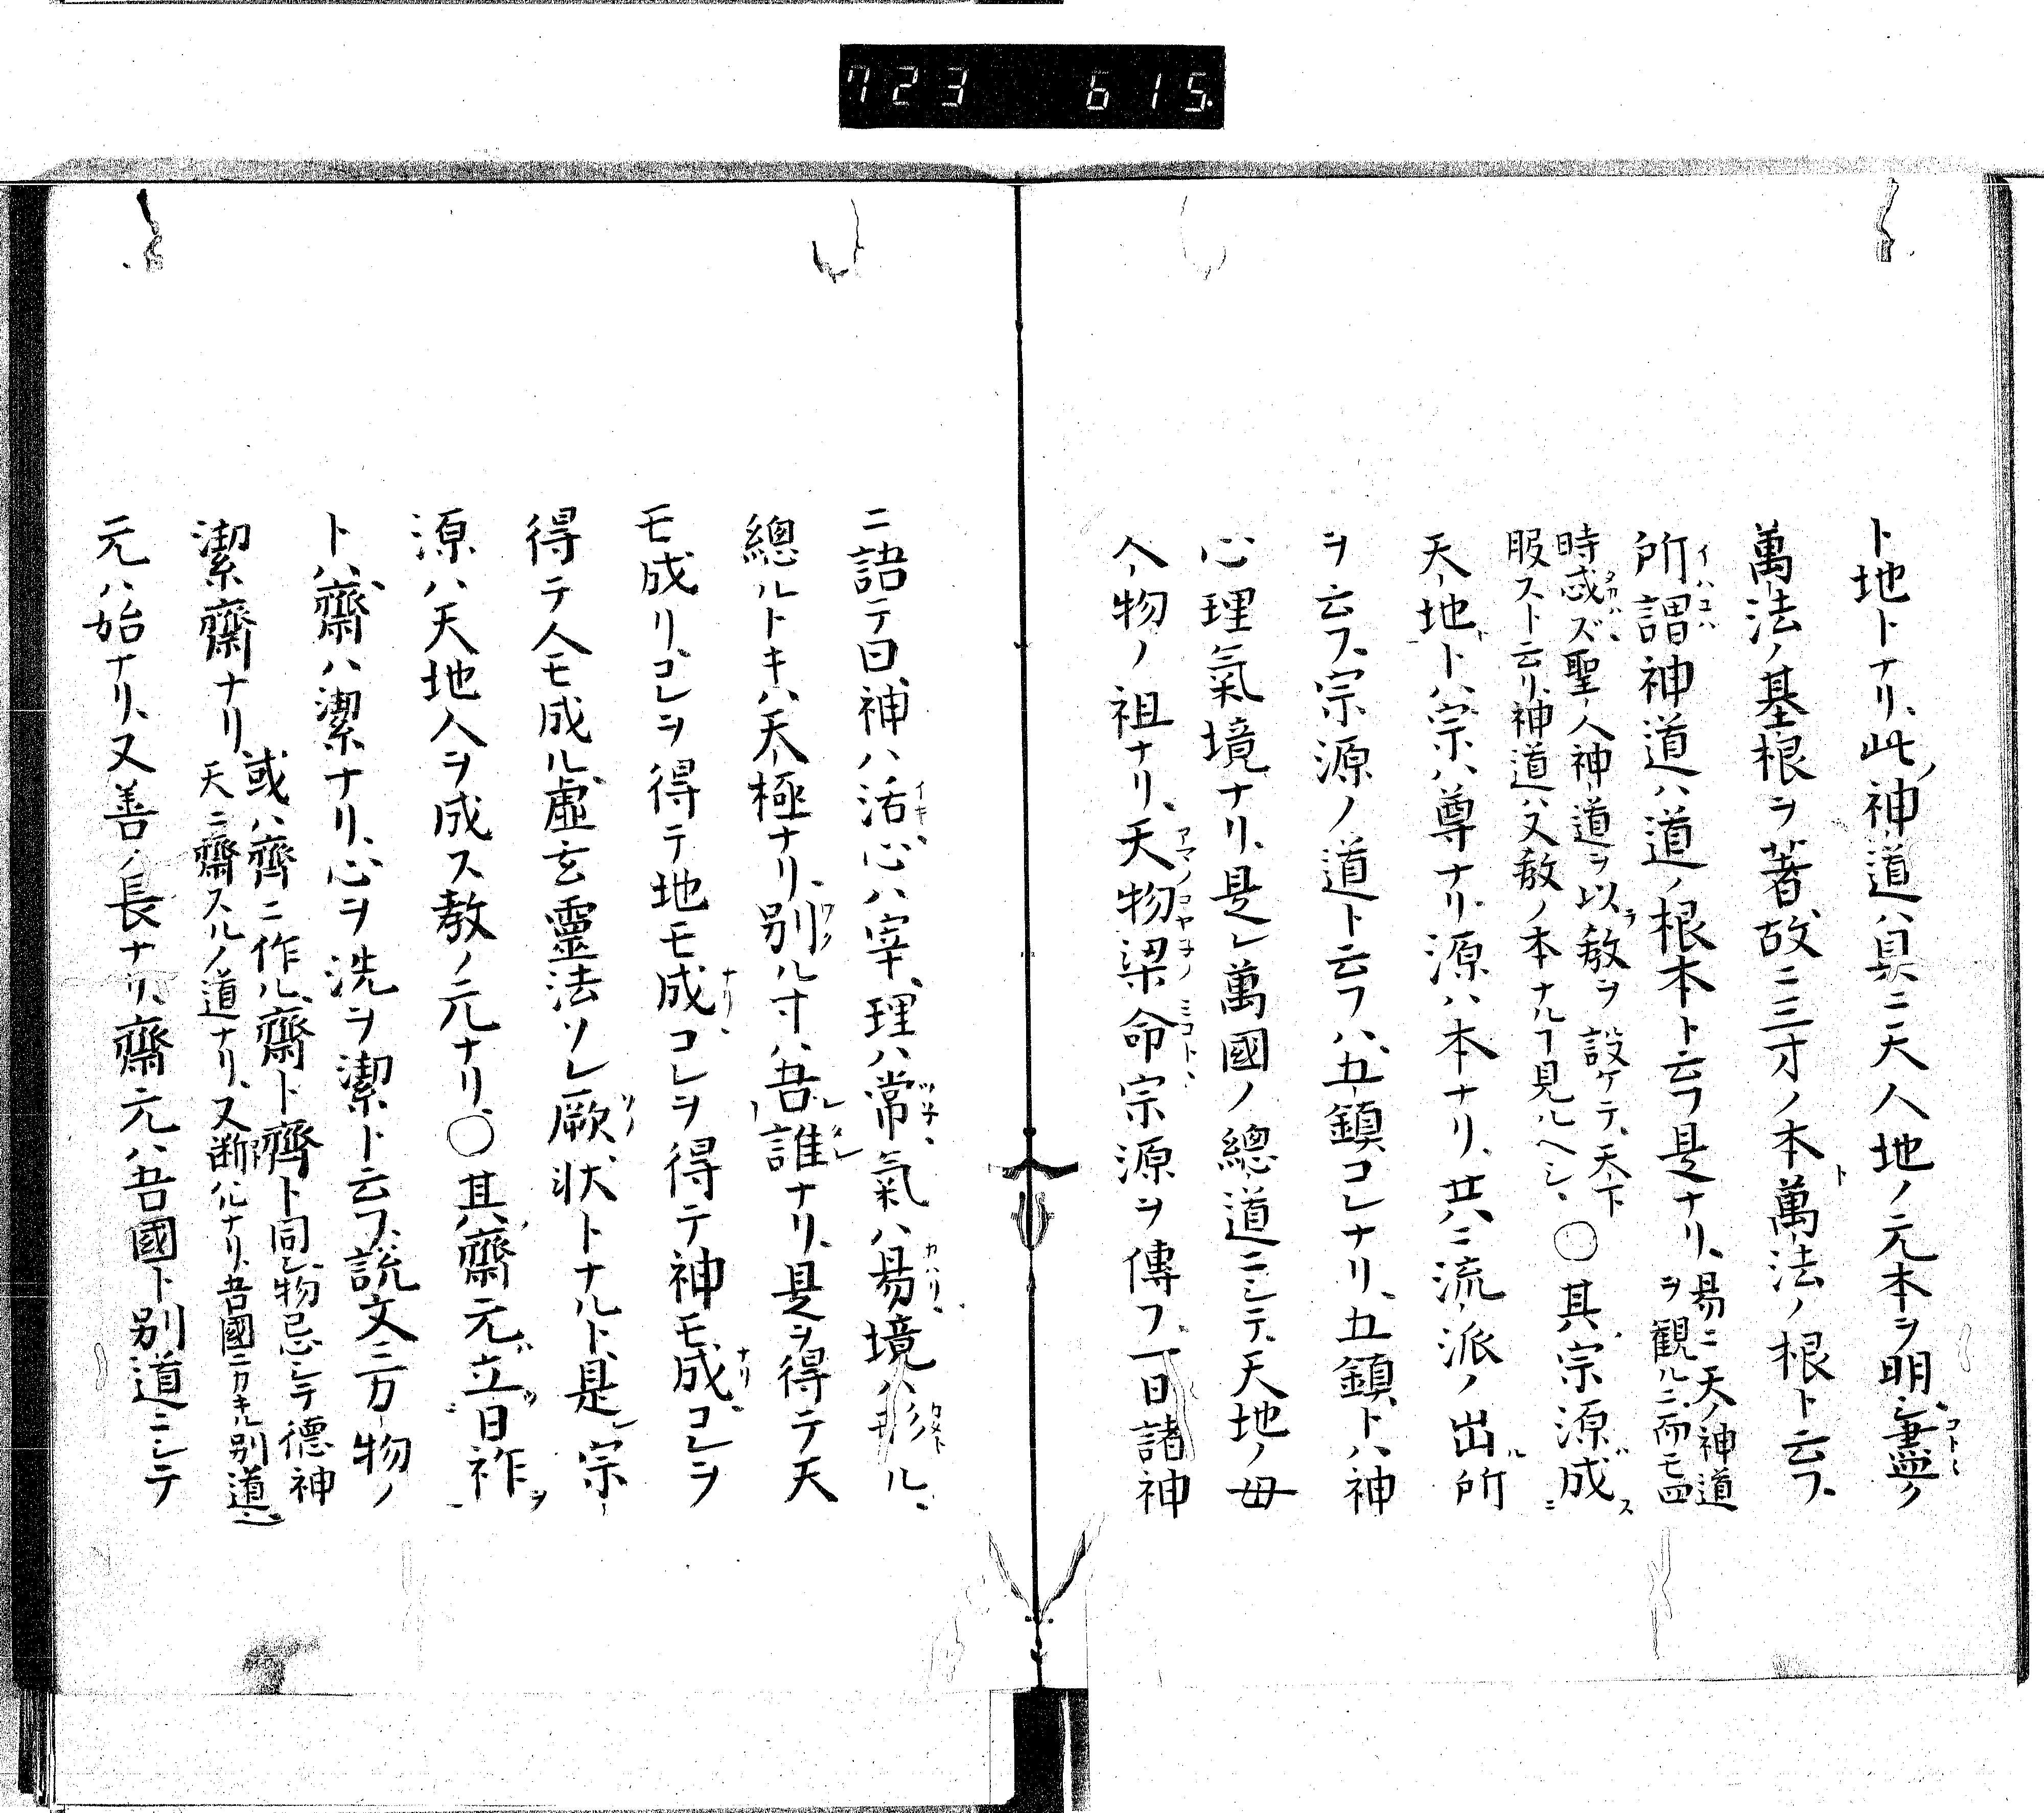 723 615
ト地トナリ、此ノ神道ハ具ニ天人地ノ元本ヲ明シ盡ク
萬法ノ基根ヲ著、故ニ三才ノ本萬法ノ根ト云フ、
所謂神道ハ道ノ根本ト云フ是ナリ、易ニ天ノ神道
ヲ観ルニ、而モ四
時忒ズ聖人神道ヲ以教ヲ設ケテ、天下
服スト云リ、神道ハ又教ノ本ナルヿ見ルヘシ、〇其宗源成
天地トハ、宗ハ尊ナリ、源ハ本ナリ、共ニ流派ノ出所
ヲ云フ、宗源ノ道ト云フハ、五鎮コレナリ、五鎮トハ神
心理氣境ナリ、是レ萬國ノ總道ニシテ、天地ノ母
人物ノ祖ナリ、天物梁命宗源ヲ傳フ、一日諸神
ニ語テ曰、神ハ活、心ハ宰、理ハ常、氣ハ易、境ハ形ル、
總ルトキハ天極ナリ、別ル寸ハ吾誰ナリ、是ヲ得テ天
モ成リ、コレヲ得テ地モ成、コレヲ得テ神モ成、コレヲ
得テ人モ成ル、虚玄靈法ソレ厥状トナルト、是レ宗
源ハ天地人ヲ成ス教ノ元ナリ、〇其齋元立日祚
トハ、齋ハ潔ナリ、心ヲ洗ヲ潔ト云フ、説文ニ万物ノ
潔齋ナリ 或ハ齊ニ作ル、齋ト齊ト同シ、物忌シテ德神
天ニ齋スルノ道ナリ、又断ルナリ、吾國ニカキル別道、
元ハ始ナリ、又善ノ長ナリ、齋元ハ吾國ト別道ニシテ